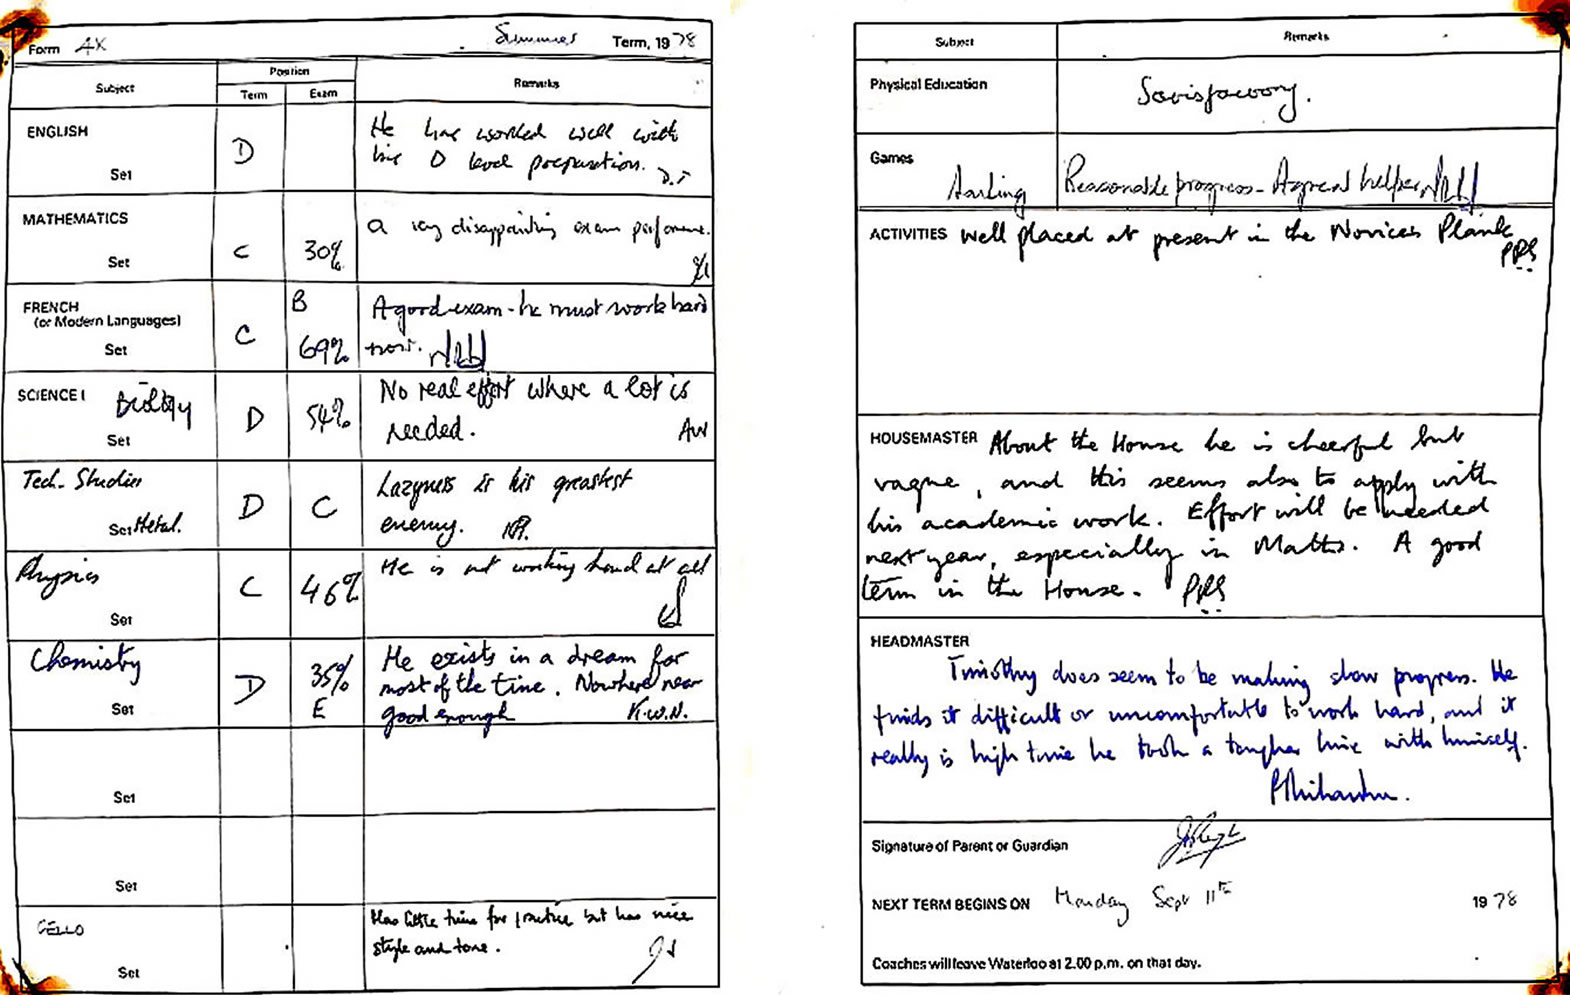 Form 4X Summer Term, 1978
Subject Position Remarks
Term Exam
ENGLISH
Set
D
He has worked well with
his O level preparation. D.T
MATHEMATICS
Set
C 30%
A very disappointing exam performance.
FRENCH
(or Modern Languages)
Set
C B
69%
A good exam - he must work hard
now.
SCIENCE I Biology
Set
D 54%
No real effort where a lot is
needed. AW
Tech. Studies
Set Metal.
D C
Lazyness is his greatest
enemy.
Physics
Set
C 46%
He is not working hard at all
Chemistry
Set
D 35%
E
He exists in a dream for
most of the time. Nowhere near
good enough K.W.N.
Set
Set
CELLO
Set
Has little time for practice but has nice
style and tone.
Subject Remarks
Physical Education Satisfactory.
Games Sailing Reasonable progress - A great helper
ACTIVITIES Well placed at present in the Novices Plank
PRS
HOUSEMASTER About the House he is cheerful but
vague, and this seems also to apply with
his academic work. Effort will be needed
next year, especially in Maths. A good
term in the House. PRS
HEADMASTER
Timothy does seem to be making slow progress. He
finds it difficult or uncomfortable to work hard, and it
really is high time he took a tougher line with himself.
Signature of Parent or Guardian
NEXT TERM BEGINS ON Monday Sept 11th 1978
Coaches will leave Waterloo at 2.00 p.m. on that day.